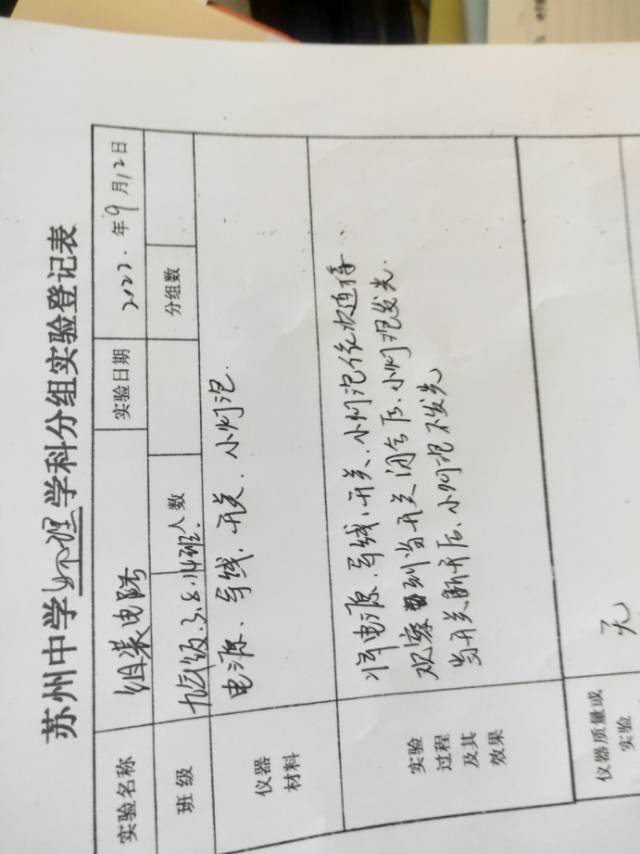 苏州中学物理学科分组实验登记表
实验名称 组装电路 实验日期 2022.年9月12日
班级 九年级 班. 人数 分组数
仪器材料 电源、导线、开关、小灯泡.
实验过程及其效果 将电源、导线、开关、小灯泡依次连接、
观察到当开关闭合后、小灯泡发光.
当开关断开后、小灯泡不发光
仪器质量或实验 无